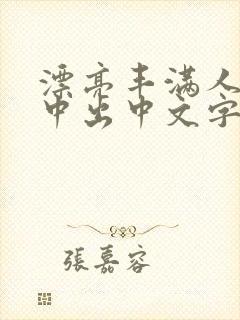 漂亮丰满人
中出中文字
張嘉容